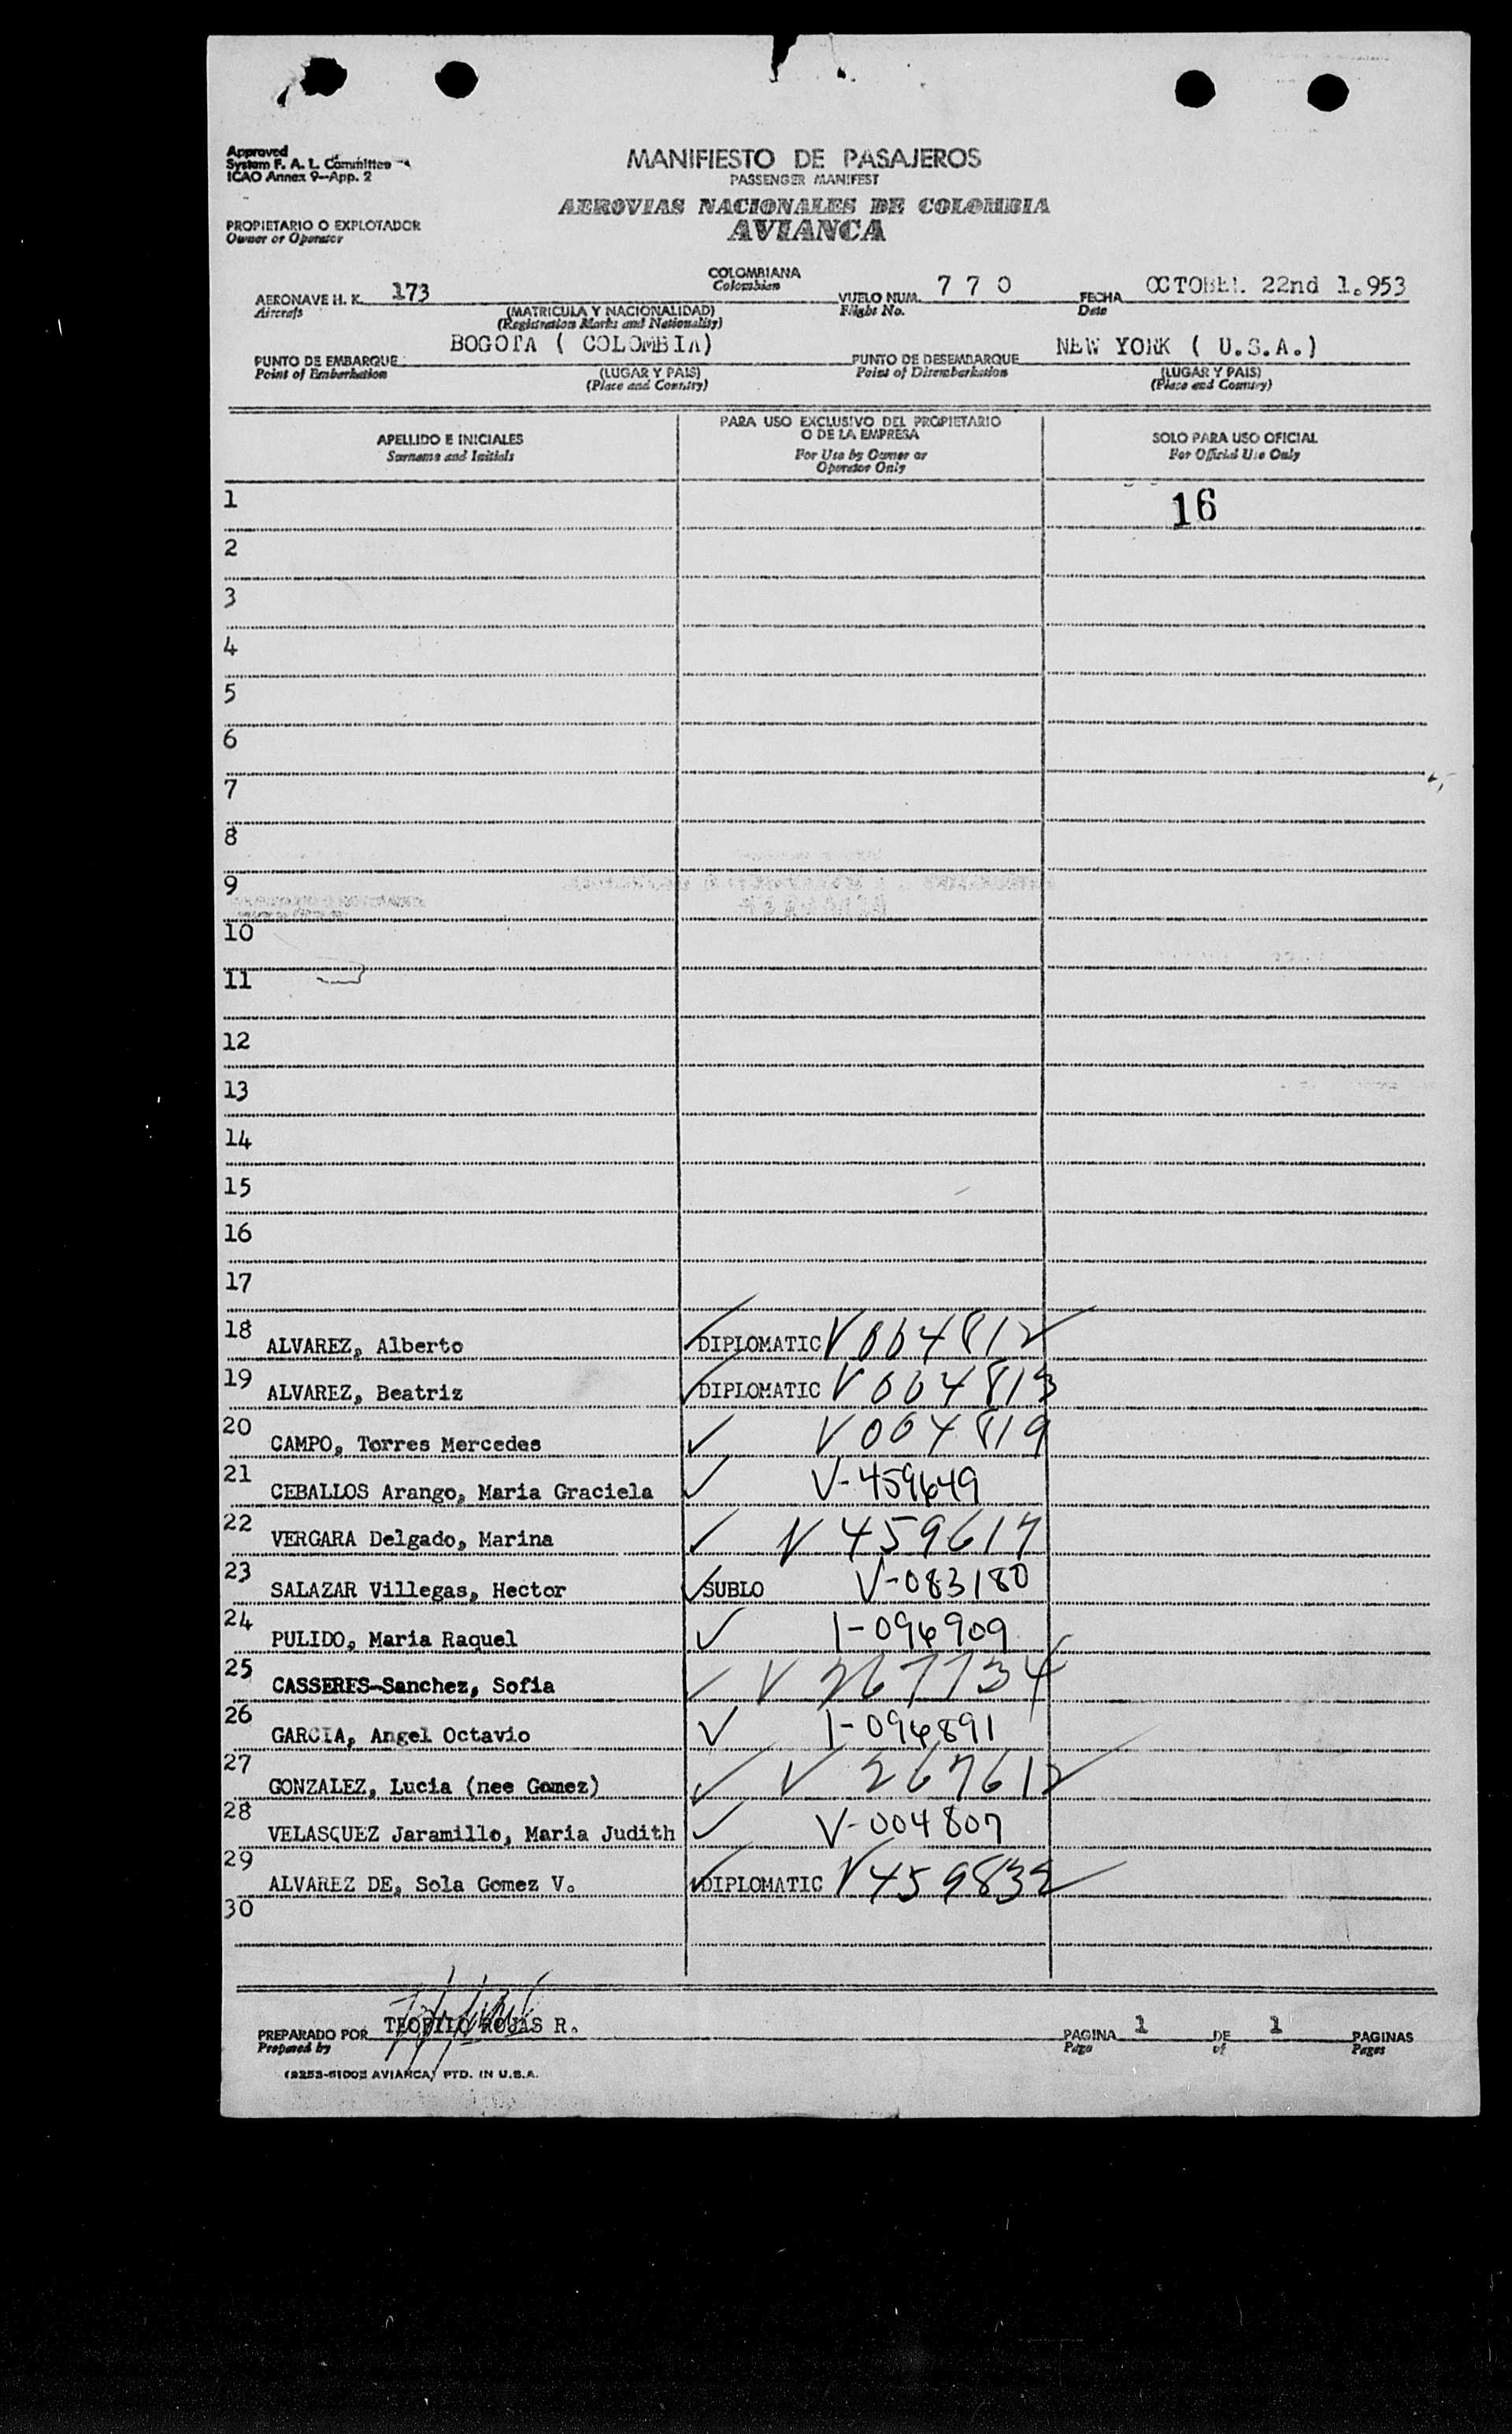 Approved
System F. A. L. Committee
ICAO Annex 9--App. 2
MANIFIESTO DE PASAJEROS
PASSENGER MANIFEST
AEROVIAS NACIONALES DE COLOMBIA
AVIANCA
PROPIETARIO O EXPLOTADOR
Owner or Operator
COLOMBIANA
Colombian
AERONAVE H. K. 173 VUELO NUM. 7 7 0 FECHA OCTOBER 22nd 1.953
Aircraft (MATRICULA Y NACIONALIDAD) Flight No. Date
(Registration Marks and Nationality)
PUNTO DE EMBARQUE BOGOTA ( COLOMBIA) PUNTO DE DESEMBARQUE NEW YORK ( U.S.A.)
Point of Embarkation (LUGAR Y PAIS) Point of Disembarkation (LUGAR Y PAIS)
(Place and Country) (Place and Country)
APELLIDO E INICIALES
Surname and Initials
PARA USO EXCLUSIVO DEL PROPIETARIO
O DE LA EMPRESA
For Use by Owner or
Operator Only
SOLO PARA USO OFICIAL
For Official Use Only
1 16
2
3
4
5
6
7
8
9
10
11
12
13
14
15
16
17
18 ALVAREZ, Alberto ✓ DIPLOMATIC V 004812
19 ALVAREZ, Beatriz ✓ DIPLOMATIC V 004813
20 CAMPO, Torres Mercedes ✓ V 004819
21 CEBALLOS Arango, Maria Graciela ✓ V-459649
22 VERGARA Delgado, Marina ✓ V 459617
23 SALAZAR Villegas, Hector ✓ SUBLO V-083180
24 PULIDO, Maria Raquel ✓ I-096909
25 CASSERES-Sanchez, Sofia ✓ V 267734
26 GARCIA, Angel Octavio ✓ I-096891
27 GONZALEZ, Lucia (nee Gomez) ✓ V 267612
28 VELASQUEZ Jaramillo, Maria Judith ✓ V-004807
29 ALVAREZ DE, Sola Gomez V. ✓ DIPLOMATIC V 459832
30
PREPARADO POR TEOFILO ROJAS R. PAGINA 1 DE 1 PAGINAS
Prepared by Page of Pages
(2253-5100S AVIANCA) PTD. IN U.S.A.